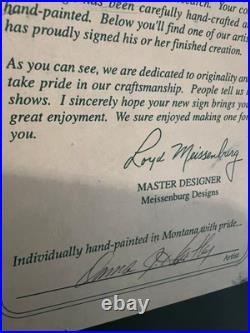 has been carefully hand-crafted a
hand-painted. Below you'll find one of our arti
has proudly signed his or her finished creation.
As you can see, we are dedicated to originality an
take pride in our craftsmanship. People tell us
shows. I sincerely hope your new sign brings yo
great enjoyment. We sure enjoyed making one fo
you.
Loyd Meissenburg
MASTER DESIGNER
Meissenburg Designs
Individually hand-painted in Montana, with pride...
Artist